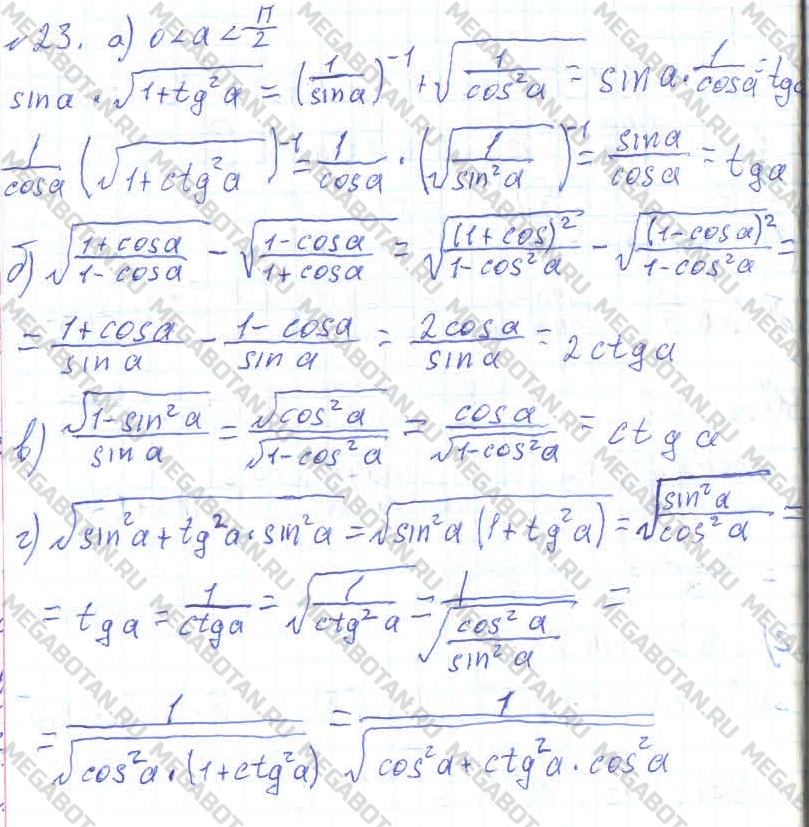 №23. а) 0 < a < π/2
sin a · √(1+tg²a) = (1/sin a)⁻¹ + √(1/cos²a) = sin a · 1/cos a = tg a
1/cos a (√(1+ctg²a))⁻¹ = 1/cos a · (√(1/sin²a))⁻¹ = sin a/cos a = tg a
б) √((1+cos a)/(1-cos a)) - √((1-cos a)/(1+cos a)) = √((1+cos)²/(1-cos²a)) - √((1-cos a)²/(1-cos²a)) =
= (1+cos a)/sin a - (1-cos a)/sin a = 2cos a/sin a = 2ctg a
в) √(1-sin²a)/sin a = √(cos²a)/√(1-cos²a) = cos a/√(1-cos²a) = ctg a
г) √(sin²a + tg²a · sin²a) = √(sin²a (1+tg²a)) = √(sin²a/cos²a) =
= tg a = 1/ctg a = √(1/ctg²a) = 1/√(cos²a/sin²a) =
= 1/√(cos²a · (1+ctg²a)) = 1/√(cos²a + ctg²a · cos²a)
MEGABOTAN.RU